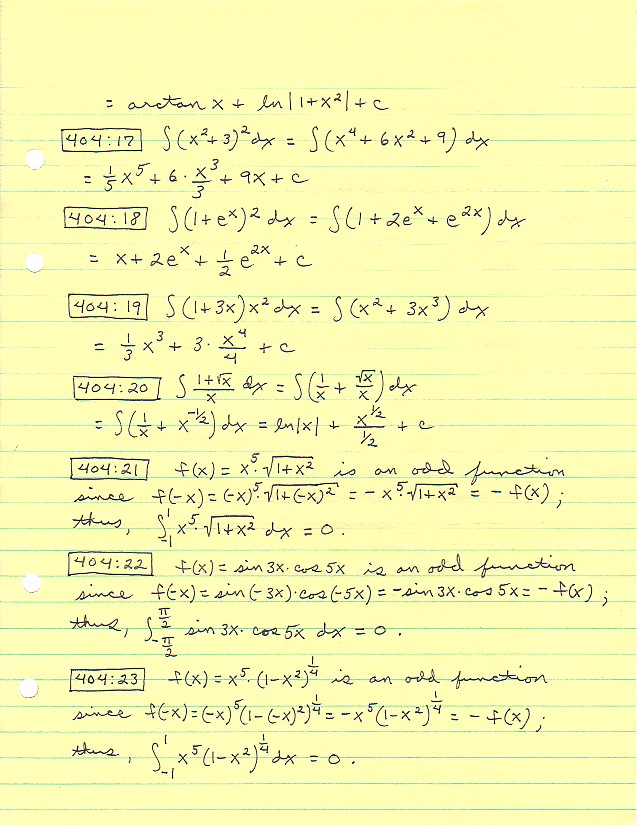 = arctan x + ln|1+x²| + c
404:17 ∫(x²+3)²dx = ∫(x⁴+6x²+9) dx
= 1/5 x⁵ + 6 · x³/3 + 9x + c
404:18 ∫(1+eˣ)² dx = ∫(1+2eˣ+e²ˣ) dx
= x + 2eˣ + 1/2 e²ˣ + c
404:19 ∫(1+3x)x² dx = ∫(x²+3x³) dx
= 1/3 x³ + 3 · x⁴/4 + c
404:20 ∫ (1+√x)/x dx = ∫(1/x + √x/x) dx
= ∫(1/x + x^(-1/2)) dx = ln|x| + x^(1/2)/(1/2) + c
404:21 f(x) = x⁵·√(1+x²) is an odd function
since f(-x) = (-x)⁵·√(1+(-x)²) = -x⁵·√(1+x²) = -f(x) ;
thus, ∫₋₁¹ x⁵·√(1+x²) dx = 0 .
404:22 f(x) = sin 3x · cos 5x is an odd function
since f(-x) = sin(-3x)·cos(-5x) = -sin 3x · cos 5x = -f(x) ;
thus, ∫_(-π/2)^(π/2) sin 3x · cos 5x dx = 0 .
404:23 f(x) = x⁵·(1-x²)^(1/4) is an odd function
since f(-x) = (-x)⁵(1-(-x)²)^(1/4) = -x⁵(1-x²)^(1/4) = -f(x) ;
thus, ∫₋₁¹ x⁵(1-x²)^(1/4) dx = 0 .